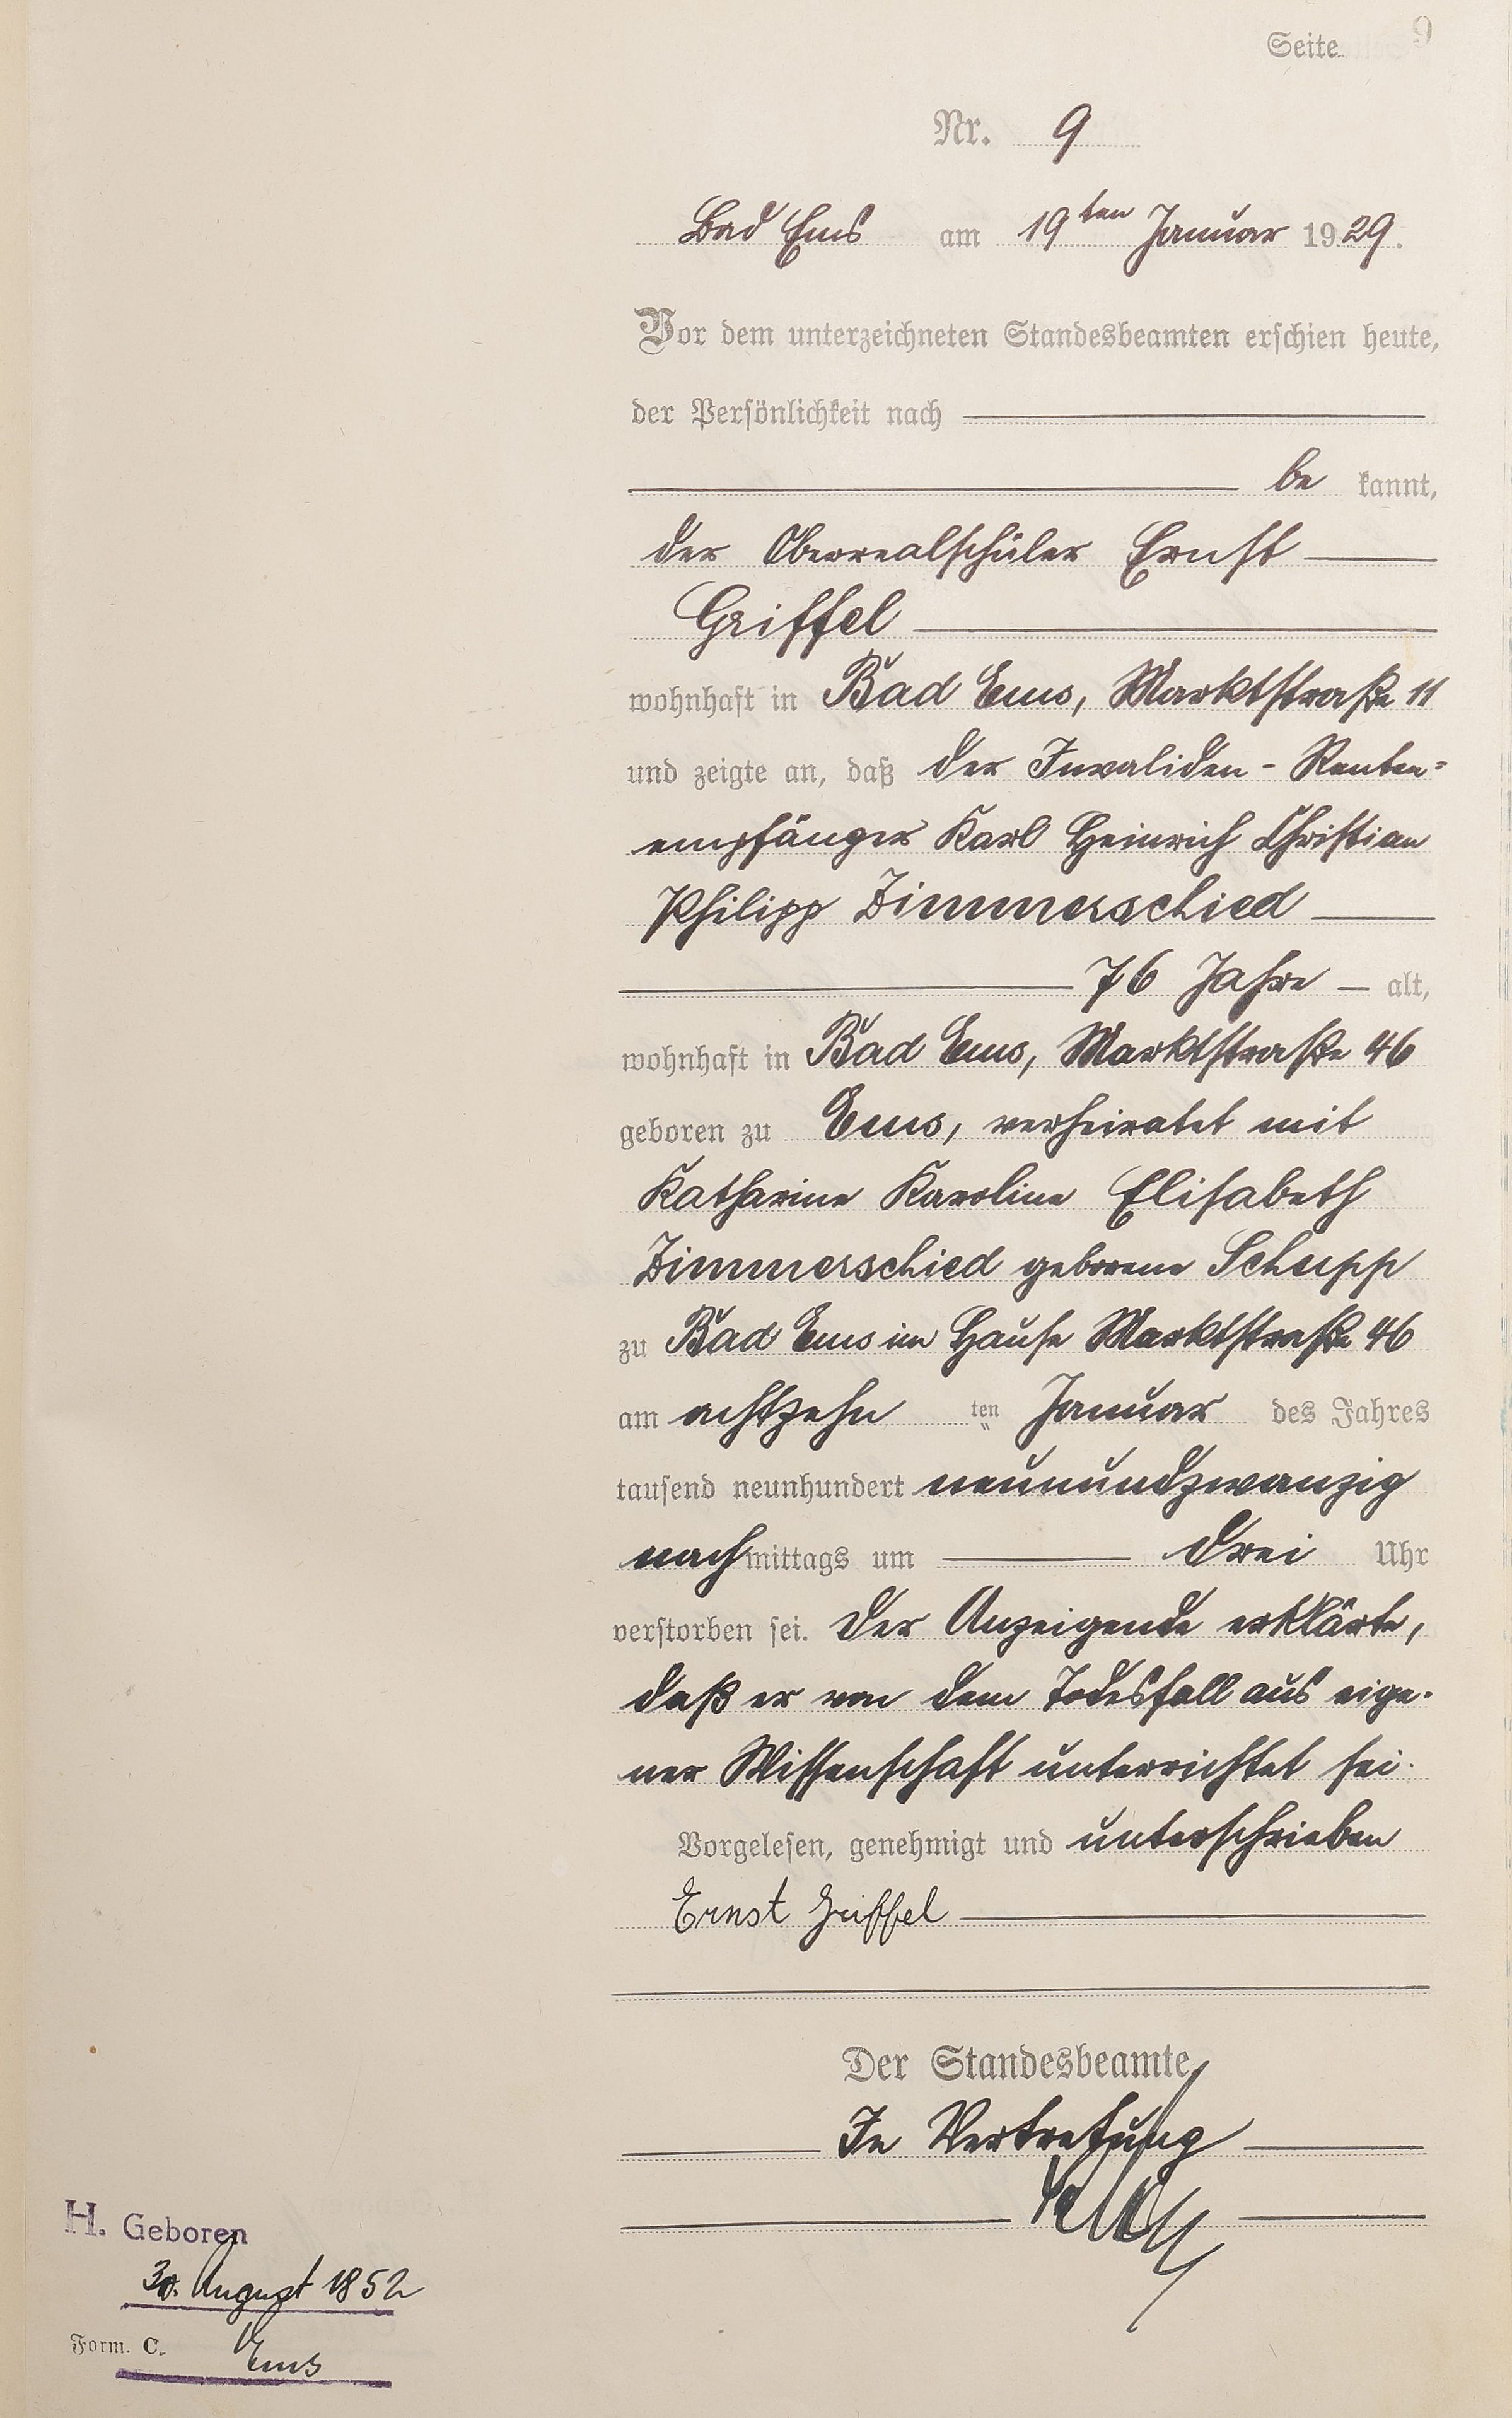 Seite 9
Nr. 9
Bad Ems am 19ten Januar 1929.
Vor dem unterzeichneten Standesbeamten erschien heute,
der Persönlichkeit nach
be kannt,
der Oberrealschüler Ernst
Griffel
wohnhaft in Bad Ems, Marktstraße 11
und zeigte an, daß der Invaliden-Renten-
empfänger Karl Heinrich Christian
Philipp Zimmerschied
76 Jahre alt,
wohnhaft in Bad Ems, Marktstraße 46
geboren zu Ems, verheiratet mit
Katharine Karoline Elisabeth
Zimmerschied geborene Schupp
zu Bad Ems im Hause Marktstraße 46
am achtzehn ten Januar des Jahres
tausend neunhundert neunundzwanzig
nachmittags um drei Uhr
verstorben sei. Der Anzeigende erklärte,
daß er von dem Todesfall aus eige-
ner Wissenschaft unterrichtet sei.
Vorgelesen, genehmigt und unterschrieben
Ernst Griffel
Der Standesbeamte
In Vertretung
H. Geboren
August 1852
Form. C. Ems